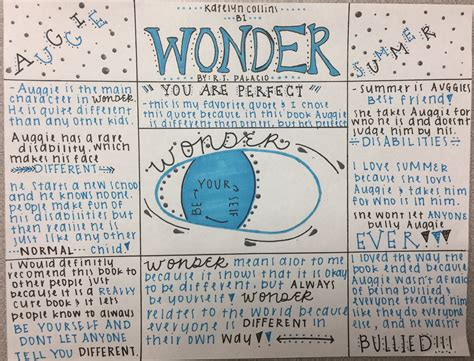 AUGGIE
Katelyn Collini
B1
WONDER
BY: R.J. PALACIO
SUMMER
- Auggie is the main
character in WONDER.
He is quite different
than any other kids.
Auggie has a rare
disability, which
makes his face
DIFFERENT
he starts a new school
and he knows noone.
people make fun of
his disabilities but
then realise he is
just like any other
NORMAL child
"YOU ARE PERFECT"
- this is my favorite quote & I chose
this quote because in this book Auggie
is different then others, but he's perfect
WONDER
BE YOUR
SELF
- summer is AUGGIES
Best friend
she takes Auggie for
who he is and doesnt
judge him by his
DISABILITIES
I love SUMMER
because she loves
Auggie & takes him
for Who is is
she wont let ANYONE
bully Auggie
EVER!!!
I would definitly
recomend this book to
other people just
because it is a REALLY
cute book & it lets
people know to always
BE YOURSELF AND
DONT LET ANYONE
TELL YOU DIFFERENT.
WONDER means alot to me
because it shows that it is okay
to be different, but ALWAYS
be yourself WONDER
relates to the world because
everyone is DIFFERENT in
their own WAY
I loved the way the
book ended because
Auggie wasn't afraid
of being bullied and
everyone treated him
like they do everyone
else and he wasn't
BULLIED!!!